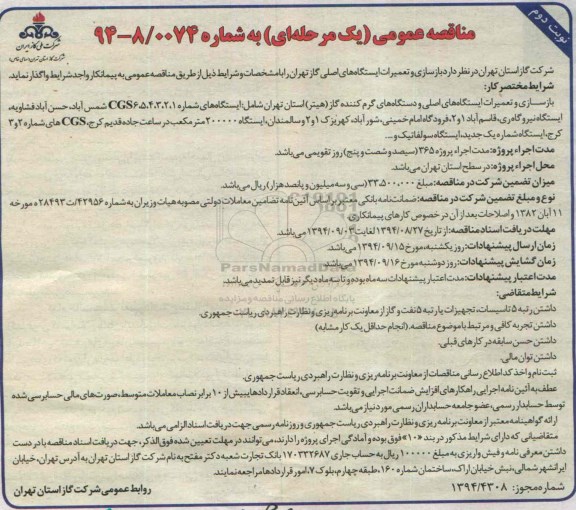 نوبت دوم
مناقصه عمومی (یک مرحله‌ای) به شماره ۰۰۷۴/۸-۹۴
شرکت ملی گاز ایران
شرکت گاز استان تهران
شرکت گاز استان تهران در نظر دارد بازسازی و تعمیرات ایستگاه‌های اصلی گاز تهران را با مشخصات و شرایط ذیل از طریق مناقصه عمومی به پیمانکار واجد شرایط واگذار نماید.
شرایط مختصر کار:
بازسازی و تعمیرات ایستگاه‌های اصلی و دستگاه‌های گرم کننده گاز (هیتر) استان تهران شامل: ایستگاه‌های شماره ۶،۵،۴،۳،۲،۱ CGS شمس آباد، حسن آباد فشاویه،
ایستگاه نیروگاه ری، قاسم آباد ۱و۲، فرودگاه امام خمینی، شورآباد، کهریزک ۱و۲ و سالمندان، ایستگاه ۲۰۰۰۰۰ متر مکعب در ساعت جاده قدیم کرج، CGS های شماره ۲و۳
کرج، ایستگاه شماره یک جدید، ایستگاه سولفاتیک و...
مدت اجراء پروژه: مدت اجراء پروژه ۳۶۵ (سیصد و شصت و پنج) روز تقویمی می‌باشد.
محل اجراء پروژه: در سطح استان تهران می‌باشد.
میزان تضمین شرکت در مناقصه: مبلغ ۳۳،۵۰۰،۰۰۰ (سی و سه میلیون و پانصد هزار) ریال می‌باشد.
نوع و مبلغ تضمین شرکت در مناقصه: ضمانت‌نامه بانکی معتبر بر اساس آئین نامه تضامین معاملات دولتی مصوبه هیات وزیران به شماره ۴۲۹۵۶/ت ۲۸۴۹۳ه مورخ
۱۱ آبان ۱۳۸۲ و اصلاحات بعد از آن در خصوص کارهای پیمانکاری.
مهلت دریافت اسناد مناقصه: از تاریخ ۱۳۹۴/۰۸/۲۷ لغایت ۱۳۹۴/۰۹/۰۳ می‌باشد.
زمان ارسال پیشنهادات: روز یکشنبه، مورخ ۱۳۹۴/۰۹/۱۵ می‌باشد.
زمان گشایش پیشنهادات: روز دوشنبه مورخ ۱۳۹۴/۰۹/۱۶ می‌باشد.
ParsNamadData
مدت اعتبار پیشنهادات: مدت اعتبار پیشنهادات سه ماه بوده و تا سه ماه دیگر نیز قابل تمدید می‌باشد.
پایگاه اطلاع رسانی مناقصه و مزایده
شرایط متقاضی:
داشتن رتبه ۵ تاسیسات، تجهیزات یا رتبه ۵ نفت و گاز از معاونت برنامه‌ریزی و نظارت راهبردی ریاست جمهوری.
داشتن تجربه کافی و مرتبط با موضوع مناقصه. (انجام حداقل یک کار مشابه)
داشتن حسن سابقه در کارهای قبلی.
داشتن توان مالی.
ثبت نام و اخذ کد اطلاع رسانی مناقصات از معاونت برنامه‌ریزی و نظارت راهبردی ریاست جمهوری.
عطف به آئین نامه اجرایی راهکارهای افزایش ضمانت اجرایی و تقویت حسابرسی، انعقاد قراردادهای بیش از ۱۰ برابر نصاب معاملات متوسط، صورت‌های مالی حسابرسی شده
توسط حسابدار رسمی، عضو جامعه حسابداران رسمی مورد نیاز می‌باشد.
ارائه گواهینامه معتبر از معاونت برنامه‌ریزی و نظارت راهبردی ریاست جمهوری و روزنامه رسمی جهت دریافت اسناد الزامی می‌باشد.
متقاضیانی که دارای شرایط مذکور در بند «۱۰» فوق بوده و آمادگی اجرای پروژه را دارند، می‌توانند در مهلت تعیین شده فوق الذکر، جهت دریافت اسناد مناقصه با در دست
داشتن معرفی نامه و فیش واریزی به مبلغ ۱۰۰۰۰۰ ریال به حساب جاری ۱۷۰۳۳۲۶۸۷ بانک تجارت شعبه دکتر مفتح به نام شرکت گاز استان تهران به آدرس تهران، خیابان
ایرانشهر شمالی، نبش خیابان اراک، ساختمان شماره ۱۶۰، طبقه چهارم، بلوک ۷، امور قراردادها مراجعه نمایند.
شماره مجوز: ۱۳۹۴/۴۳۰۸
روابط عمومی شرکت گاز استان تهران